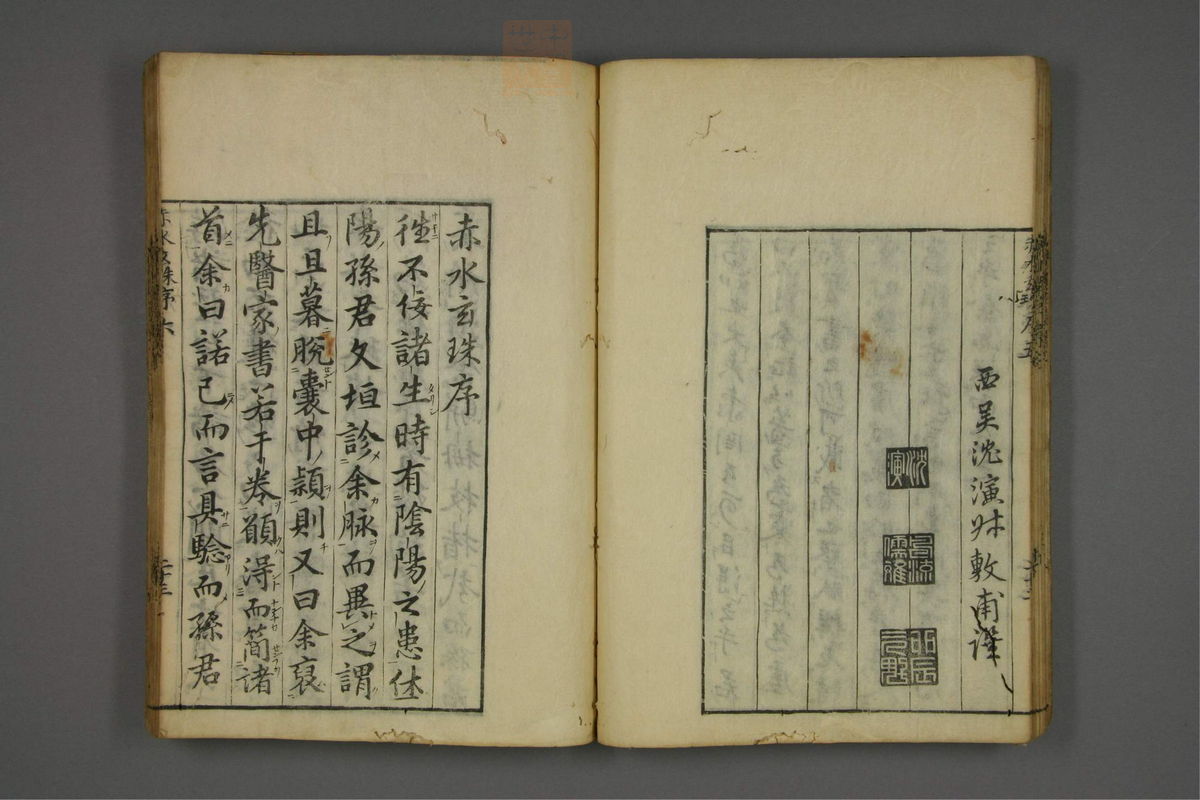 西吴沈演叔敷甫譔
沈演
赤水玄珠序
徃不佞諸生時有陰陽之患休
陽孫君文垣診余脉而異之謂
且旦暮脫囊中頴則又曰余裒
先醫家書若干卷願淂而簡諸
首余曰諾已而言具驗而孫君
赤水玄珠序 六